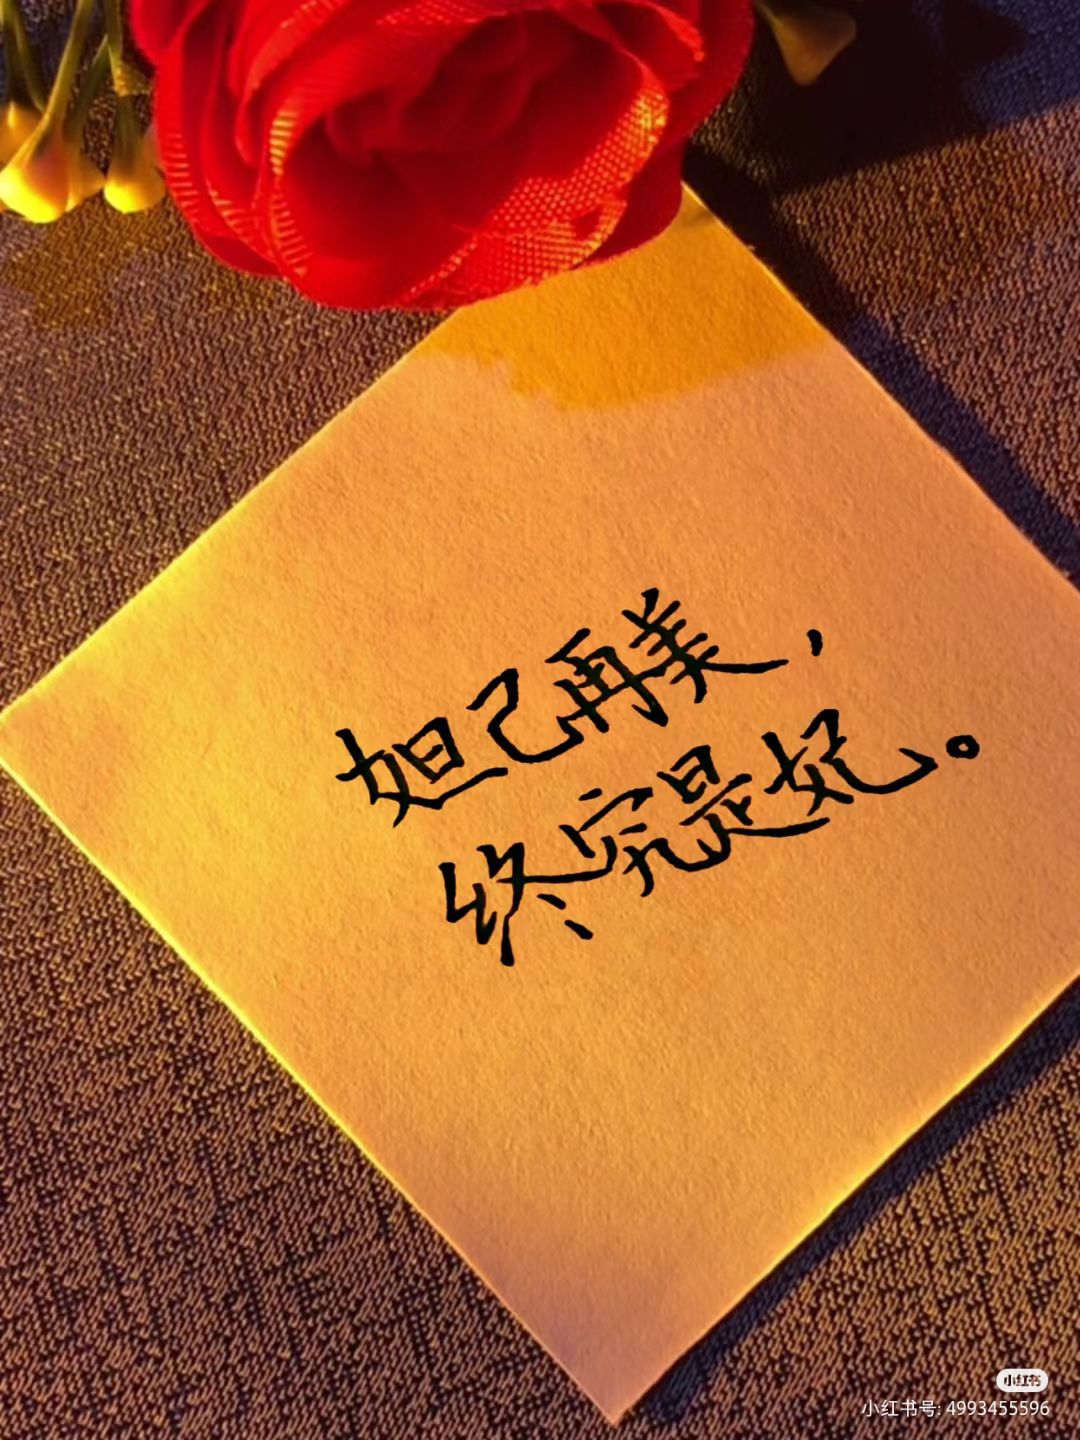 妲己再美，
终究是妃。
小红书
小红书号: 4993455596